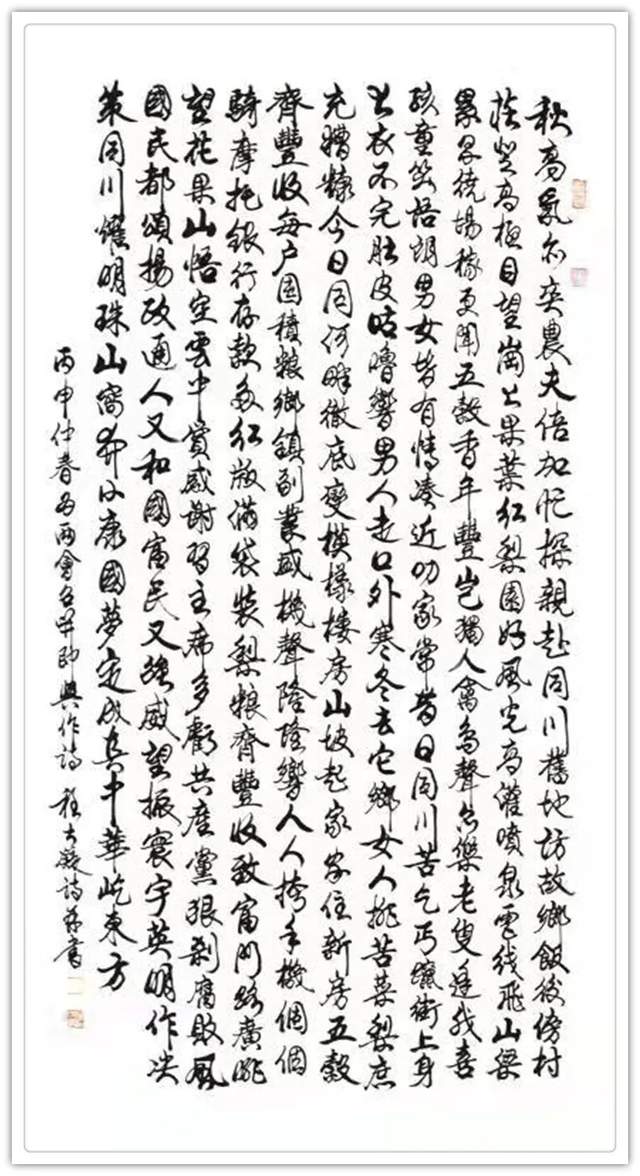 秋高氣亦爽農夫倍加忙探親赴同川舊地訪故鄉飯後傍村
扶登高極目望崗上果葉紅梨園好風光高灌噴泉電线飛山梁
累累繞場稼更聞五穀香年豐豈獨人禽鳥聲亦樂老叟逢我喜
孩童笑語朗男女皆有情凑近叨家常昔日同川苦乞丐蹴街上身
上衣不完肚皮咕嚕響男人走口外寒冬去它鄉女人挑苦菜梨庶
充糟糠今日同何時徹底變模樣樓房山坡起家家住新房五穀
齊豐收每户囤積粮鄉鎮副業盛機聲隆隆響人人挎手機個個
騎摩托銀行存款多红版滿袋裝梨粮齊豐收致富門路廣眺
望花果山悟空雲中賞感謝習主席多虧共産黨狠刹腐敗風
國民都頌揚政通人又和國富民又強威望振寰宇英明作决
策同川耀明珠山窩奔小康國夢定成真中華屹東方
丙申仲春為兩會召开即興作詩 程大凝詩并書